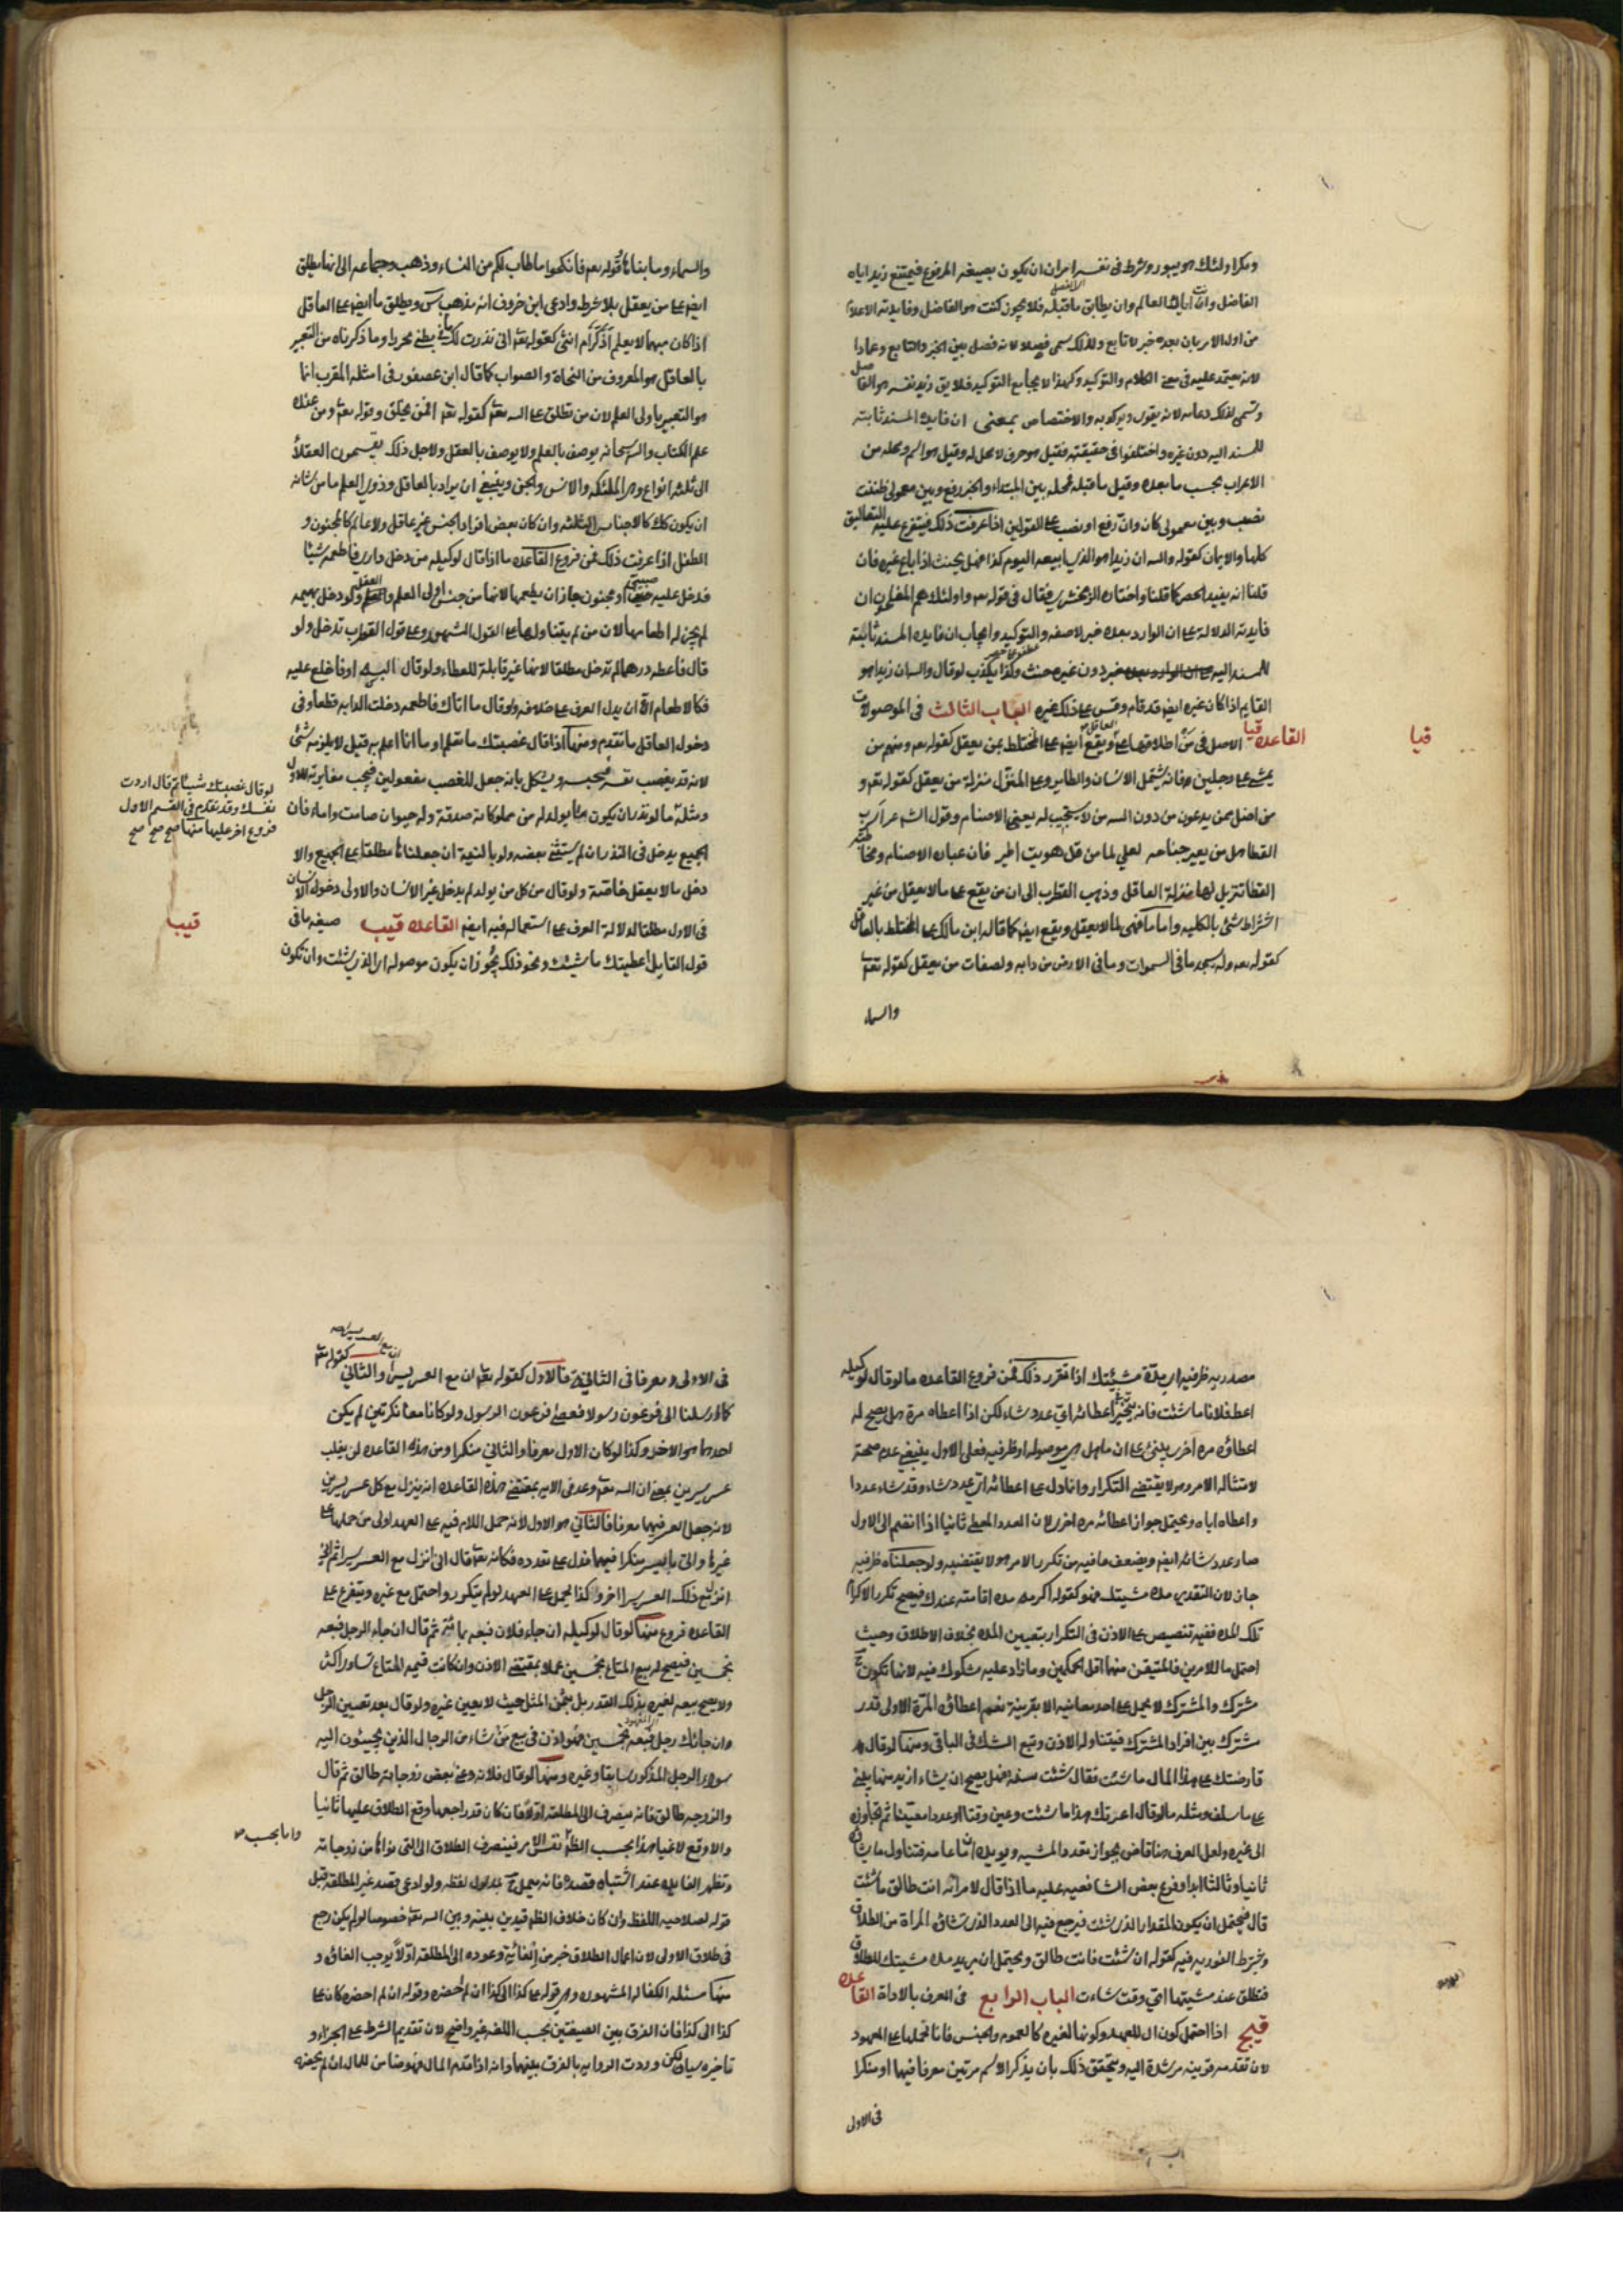 ومكرا ولئك هو يبور وشرط فى نفسه امران ان يكون بصيغة المرفوع فيمتنع زيد اياه
الفاضل وانت اياك العالم وان يطابق ما قبله فلا يجوز كنت هو الفاضل وفايدته الاعلام
من اول الامر بان بعده خبر لا تابع ولذلك سمى فصلا لانه فصل بين الخبر والتابع وعمادا
لانه يعتمد عليه فى معنى الكلام والتوكيد ولهذا لا يجامع التوكيد فلا يق زيد نفسه هو الفاضل
وتسمى لذلك دعامه لانه يقوى ويوكد به والاختصاص بمعنى ان فايدة المسند ثابته
للمسند اليه دون غيره واختلفوا فى حقيقته فقيل هو حرف لا محل له وقيل هو اسم ومحله من
الاعراب بحسب ما بعده وقيل ما قبله فمحله بين المبتداء والخبر رفع وبين معمولى ظننت
نصب وبين معمولى كان وان رفع او نصب على القولين اذا عرفت ذلك فيتفرع عليه التعاليق
كلها والايمان كقوله والله ان زيدا هو الذى ابيعه اليوم كذا فهل يحنث اذا باع غيره فان
قلنا انه يفيد الحصر كما قلنا واختاره الزمخشرى فقال فى قوله تعه واولئك هم المفلحون ان
فايدته الدلالة على ان الوارد بعده خبر لا صفه والتوكيد وايجاب ان فايدة المسند ثابتة
للمسند اليه دون غيره حنث وكذا يكذب لو قال والله ان زيدا هو
القايم اذا كان غيره ايضا قد قام وقس على ذلك غيره الباب الثالث فى الموصولات
القاعده قيا الاصل فى من اطلاقها على العاقل ويقع ايضا على المختلط بمن يعقل كقوله تعه ومنهم من
قيا
يمشى على رجلين فانه يشتمل الانسان والطاير وعلى المنزل منزلة من يعقل كقوله تعه و
من اضل ممن يدعون من دون الله من لا يستجيب له يعنى الاصنام وقول الشاعر اسرب
القطا هل من يعير جناحه لعلى الى من قد هويت اطير فان عباده الاصنام ومخاطبه
القطا تنزيل لها منزلة العاقل وذهب القطرب الى ان من يقع على ما لا يعقل من غير
اشتراط شئ بالكليه واما ما فهى لما لا يعقل ويقع ايضا كما قاله ابن مالك على المختلط بالعاقل
كقوله تعه ولله يسجد ما فى السموات وما فى الارض من دابه ولصفات من يعقل كقوله تعه
والسماء
والسماء وما بناها وقوله تعه فانكحوا ما طاب لكم من النساء وذهب جماعه الى انها يطلق
ايضا على من يعقل بلا شرط وادعى ابن خروف انه مذهب س ويطلق ما ايضا على العاقل
اذا كان مبهما لا يعلم اذكر ام انثى كقوله تعه انى نذرت لك ما فى بطنى محررا وما ذكرناه من التعبير
بالعاقل هو المعروف من النحاة والصواب كما قال ابن عصفور فى امثلة المقرب انما
هو التعبير باولى العلم لان من تطلق على الله تعه كقوله تعه افمن يخلق وقوله تعه ومن عنده
علم الكتاب والله سبحانه يوصف بالعلم ولا يوصف بالعقل ولاجل ذلك يقسمون العقلاء
الى ثلثه انواع وهو الملئكه والانس والجن وينبغى ان يراد بالعاقل وذوى العلم ما من شانه
ان يكون كك كالاجناس الثلثه وان كان بعض افراد الجنس غير عاقل ولا عالم كالمجنون و
الطفل اذا عرفت ذلك فمن فروع القاعده ما اذا قال لوكيله من دخل دارى فاطعمه شيئا
فدخل عليه صبى او مجنون جاز ان يطعمها لانها من جنس اولى العلم والعقل ولو دخل بهيمه
لم يجز له اطعامها لان من لم يتناولها على القول المشهور وعلى قول القطرب تدخل ولو
قال فاعطه درهما لم تدخل مطلقا لانها غير قابلة للعطاء ولو قال البسه او فاخلع عليه
فكالاطعام الا ان يدل العرف على خلافه ولو قال ما اتاك فاطعمه دخلت الدابه قطعا وفى
دخول العاقل ما تقدم ومنها اذا قال غصبتك ما تعلم او ما انا اعلم به قيل لا يلزمه شئ
لانه قد يغصب نفسه فيحبسه ويشكل بانه جعل للغصب مفعولين فيجب مغايرته للاول
لو قال غصبتك شيئا ثم قال اردت
نفسك وقد تقدم فى القسم الاول
فروع اخر عليها منها صح صح صح
ومثله ما لو نذر ان يكون ما يولد له من مملوكاته صدقة وله حيوان صامت واماء فان
الجميع يدخل فى النذر ان لم يستثن بعضه ولو بالنية ان جعلنا ما مطلقا على الجميع والا
دخل ما لا يعقل خاصة ولو قال من كل من يولد لم يدخل غير الانسان والاولى دخول الانسان
فى الاول مطلقا لدلالة العرف على استعماله فيه ايضا القاعده قيب صيغه ما فى
قيب
قول القايل اعطيتك ما شئت ونحو ذلك يجوز ان يكون موصوله اى الذى شئت وان تكون
مصدريه ظرفيه اى مدة مشيئتك اذا تقرر ذلك فمن فروع القاعده ما لو قال لوكيله
اعط فلانا ما شئت فانه يتخير اعطائه اى عدد شاء لكن اذا اعطاه مرة هل يصح له
اعطاؤه مره اخرى يبنى على ان ما هل هى موصوله او ظرفيه فعلى الاول ينبغى عدم صحة
لامتثاله الامر وهو لا يقتضى التكرار وانما دل على اعطائه اى عدد شاء وقد شاء عددا
واعطاه اياه ويحتمل جواز اعطائه مره اخرى لان العدد المعطى ثانيا اذا انضم الى الاول
صار عدد شائه ايضا ويضعف ما فيه من تكرر الامر وهو لا يقتضيه ولو جعلناه ظرفيه
جاز لان التقدير مده مشيتك فهو كقوله اكرمه مده اقامته عندك فيصح تكرر الاكرام
تلك المده ففيه تنصيص على الاذن فى التكرار بتعيين المده بخلاف الاطلاق وحيث
احتمل ما للامرين فالمتيقن منهما اقل الحكمين وما زاد عليه مشكوك فيه لانها تكون ح
مشترك والمشترك لا يحمل على احد معانيه الا بقرينة نعم اعطاؤه المرة الاولى قدر
مشترك بين افراد المشترك فيتناوله الاذن وتبع الشك فى الباقى ومنها لو قال
قارضتك على هذا المال ما شئت فقال شئت سنه فهل يصح ان يشاء ازيد منها يبنى
على ما سلف ومثله ما لو قال اعرتك هذا ما شئت وعين وقتا او عددا معينا ثم تجاوزه
الى غيره ولعل العرف هنا قاض بجواز تعدد المشيه ويويده ان ما عامه فتتناول ما يشاؤه
ثانيا وثالثا ابدا وفرع بعض الشافعيه عليه ما اذا قال لامراته انت طالق ما شئت
قال فيحتمل ان يكون المقدار الذى شئت فيرجع فيه الى العدد الذى تشاؤه المراة من الطلاق
وشرط الفوريه فيه كقوله ان شئت فانت طالق ويحتمل ان يريد مده مشيتك للطلاق
فتطلق عند مشيتها اى وقت شاءت الباب الرابع فى العرف بالاداة القاعده
قيج اذا احتمل كون ال للعهد وكونها لغيره كالعموم والجنس فانا نحملها على المعهود
لان تقدمه قرينه مرشدة اليه ويتحقق ذلك بان يذكر الاسم مرتين معرفا فيهما او منكرا
فى الاولى
فى الاولى ومعرفا فى الثانية فالاول كقوله تعه ان مع العسر يسرا والثانى
كما ارسلنا الى فرعون رسولا فعصى فرعون الرسول ولو كانا معا نكرتين لم يكن
احدهما هو الاخر وكذا لو كان الاول معرفا والثانى منكرا ومن هذه القاعده لن يغلب
عسر يسرين بمعنى ان الله تعه وعد فى الايه بمقتضى هذه القاعده انه ينزل مع كل عسر يسرين
لانه جعل العسر فيهما معرفا فالثانى هو الاول لانه حمل اللام فيه على العهد اولى من حملها على
غيرها واتى باليسر منكرا فيهما فدل على تعدده فكانه تعه قال انى انزل مع العسر يسرا ثم انى
انزل مع ذلك العسر يسرا اخر وكذا يحمل على العهد لو لم يتكرر واحتمل مع غيره ويتفرع على
القاعده فروع منها لو قال لوكيله ان جاء فلان فبعه بمائة ثم قال ان جاء الرجل فبعه
بخمسين فيصح له بيع المتاع بخمسين عملا بمقتضى الاذن وان كانت قيمه المتاع تساوى اكثر
ولا يصح بيعه لغيره بذلك القدر بل بثمن المثل حيث لا يعين غيره ولو قال بعد تعيين الرجل
وان جائك رجل فبعه بخمسين فهو اذن فى بيع من شاء من الرجال الذين يجيئون اليه
سواء الرجل المذكور سابقا وغيره ومنها لو قال فلانه وعنى بعض زوجاته طالق ثم قال
والزوجه طالق فانه يصرف الى المطلقه اولا فان كان قد راجعها وقع الطلاق عليها ثانيا
والا وقع لاغيا هذا بحسب الظاهر نفس الامر فينصرف الطلاق الى التى نواها من زوجاته
واما بحسب صح
وتظهر الفايده عند اشتباه قصده فانه يحمل ح على مدلول لفظه ولو ادعى قصد غير المطلقه قبل
قوله لصلاحيه اللفظ وان كان خلاف الظاهر فيدين بينه وبين الله تعه خصوصا لو لم يكن رجع
فى طلاق الاولى لان اعمال الطلاق خير من الغائه وعوده الى المطلقه اولا يوجب الغاؤه و
منها مسئله الكفاله المشهوره وهى قوله على كذا الى كذا ان لم احضره وقوله ان لم احضره كان على
كذا الى كذا فان الفرق بين الصيغتين بحسب اللفظ غير واضح لان تقديم الشرط على الجزاء و
تاخيره سيان لكن وردت الروايه بالفرق بينهما وانه اذا قدم المال فهو ضامن للمال ان لم يحضره